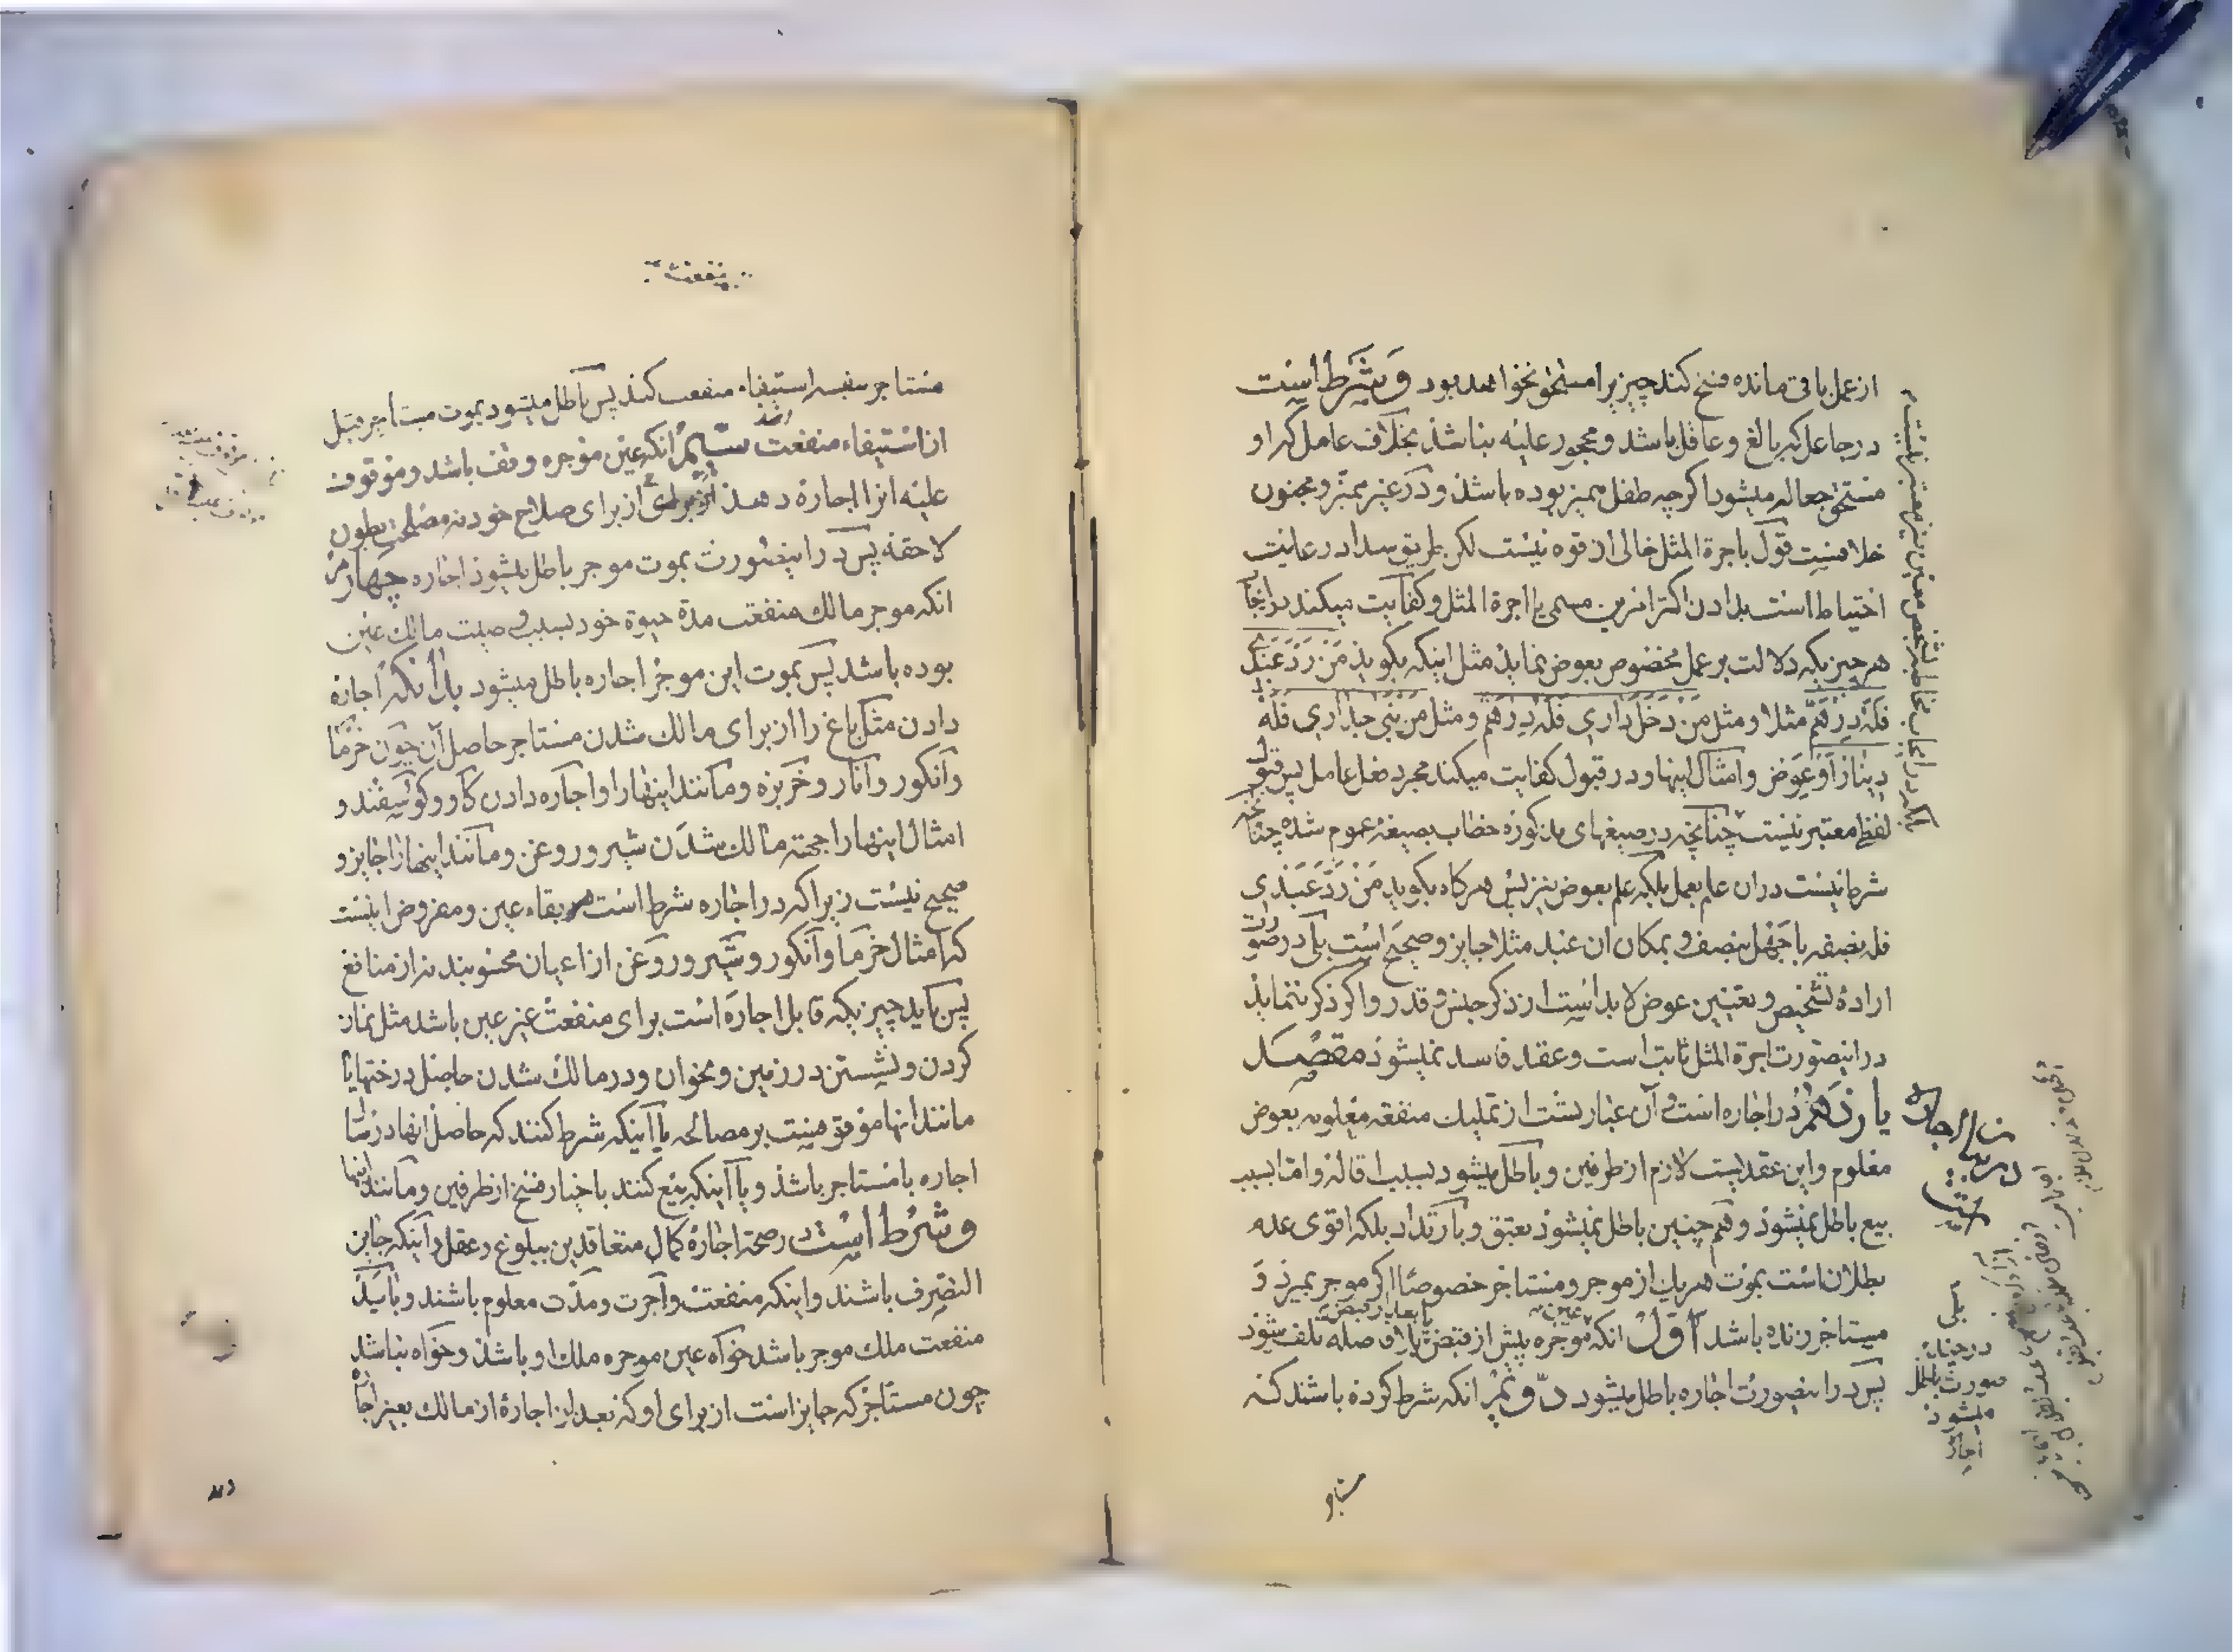 از عمل باقی مانده فسخ کند چیزیرا مستحق نخواهد بود و شرط است
در جاعل که بالغ و عاقل باشد و محجور علیه نباشد بخلاف عامل که او
مستحق جعاله میشود اگرچه طفل ممیز بوده باشد و در غیر ممیز و مجنون
خلافست قول باجرة المثل خالی از قوه نیست لکن طریق سداد رعایت
احتیاط است بدادن اکثر امرین مسمی یا اجرة المثل و کفایت میکند در ایجاب
هر چیزیکه دلالت بر عمل مخصوص بعوض نماید مثل اینکه بگوید مَن رَدَّ عَبدی
فَلَهُ دِرْهَمٌ مثلا و مثل مَنْ دَخَلَ داری فَلَهُ دِرْهَم و مثل مَنْ بَنی جِداری فَلَهُ
دینار اَوْ عِوَض و امثال اینها و در قبول کفایت میکند مجرد فعل عامل پس قبول
لفظ معتبر نیست چنانچه در صیغهای مذکوره خطاب بصیغهٔ عموم شده چنانچه
شرط نیست در ان علم بعمل بلکه علم بعوض نیز پس هرگاه بگوید مَنْ رَدَّ عَبْدی
فله نصفه با جهل بنصف و بمکان ان عبد مثلا جایز و صحیح است بلی در صورت
ارادهٔ تشخیص و تعیین عوض لابد است از ذکر جنس و قدر و اگر ذکر ننماید
در اینصورت اجرة المثل ثابت است و عقد فاسد نمیشود مقصد
یازدهم در اجاره است و آن عبارتست از تملیك منفعه معلومه بعوض
معلوم و این عقدیست لازم از طرفین و باطل میشود بسبب اقاله و اما بسبب
بیع باطل نمیشود و هم چنین باطل نمیشود بعتق و بارتداد بلکه اقوی عدم
بطلان است بموت هر یك از موجر و مستاجر خصوصًا اگر موجر بمیرد و
مستاجر زنده باشد اول انکه عین موجره پیش از قبض یا بعد از قبض بلا فاصله تلف شود
پس در اینصورت اجاره باطل میشود دوّم انکه شرط کرده باشند که
بلکه در ایجاب مخاطبه شخص معین نیز معتبر نیست
در بیان اجاره است
بلی
در چند
صورت باطل
میشود
اجاره
مستاجر
منفعت
مستاجر بنفسه استیفاء منفعت کند پس باطل میشود بموت مستأجر قبل
از استیفاء منفعت سیّم انکه عین موجره وقف باشد و موقوف
علیه انرا اجاره دهد از برای صلاح خود نه مصلحت بطون
لاحقه پس در اینصورت بموت موجر باطل میشود اجاره چهارم
انکه موجر مالك منفعت مدة حیوة خود بسبب وصیت مالك عین
بوده باشد پس بموت این موجر اجاره باطل میشود بدانکه اجاره
دادن مثل باغ را از برای مالك شدن مستاجر حاصل آن چون خرما
و انگور و انار و خربزه و مانند اینها را و اجاره دادن گاو و گوسفند و
امثال اینها را بجهته مالك شدن شیر و روغن و مانند اینها را جایز و
صحیح نیست زیرا که در اجاره شرط است بقاء عین و مفروض اینست
که امثال خرما و انگور و شیر و روغن از اعیان محسوبند نه از منافع
پس باید چیزیکه قابل اجاره است برای منفعت غیر عین باشد مثل نماز
کردن و نشستن در زمین و نحو ان و در مالك شدن حاصل درختها یا
مانند انها موقوفست بر مصالحه یا اینکه شرط کنند که حاصل انها در زمان
اجاره با مستاجر باشد و یا اینکه بیع کنند با خیار فسخ از طرفین و مانند اینها
و شرط است در صحة اجاره کمال متعاقدین ببلوغ و عقل و اینکه جایز
التصرف باشند و اینکه منفعت و اجرت و مدّت معلوم باشند و باید
منفعت ملك موجر باشد خواه عین موجره ملك او باشد و خواه نباشد
چون مستأجر که جایز است از برای او که بعد از اجاره از مالك بغیر اجاره